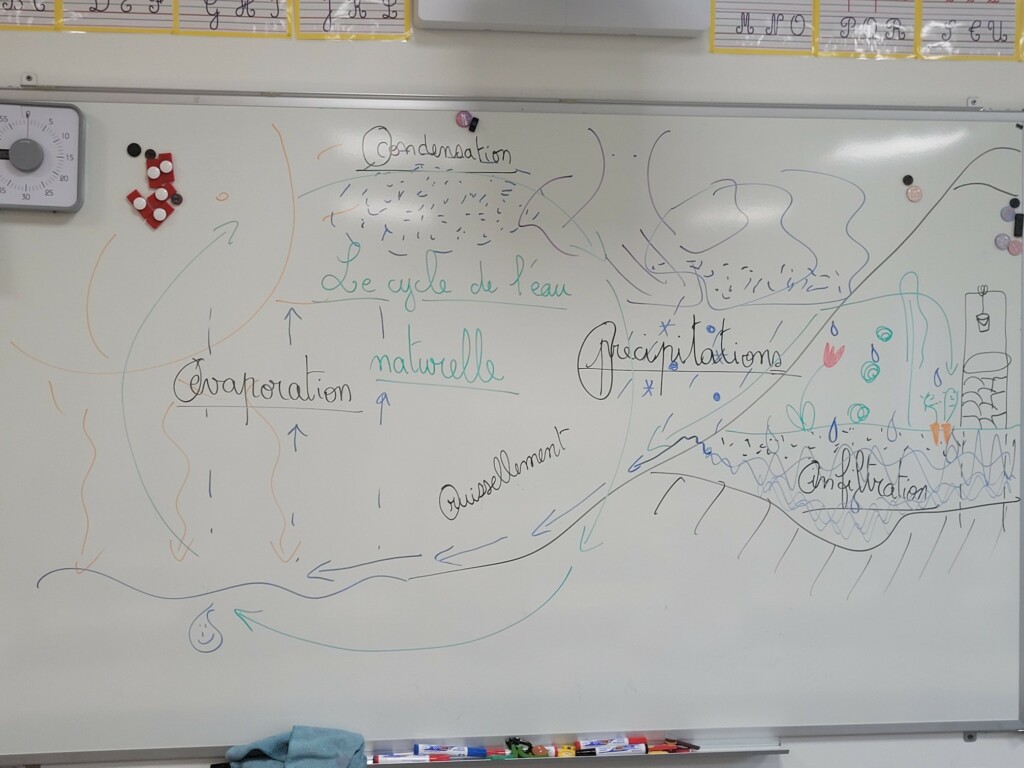 D E F
G H I
J K L
M N O
P Q R
S T U
55
0
5
10
15
20
25
30
Condensation
Le cycle de l'eau
naturelle
évaporation
précipitations
Ruissellement
infiltration